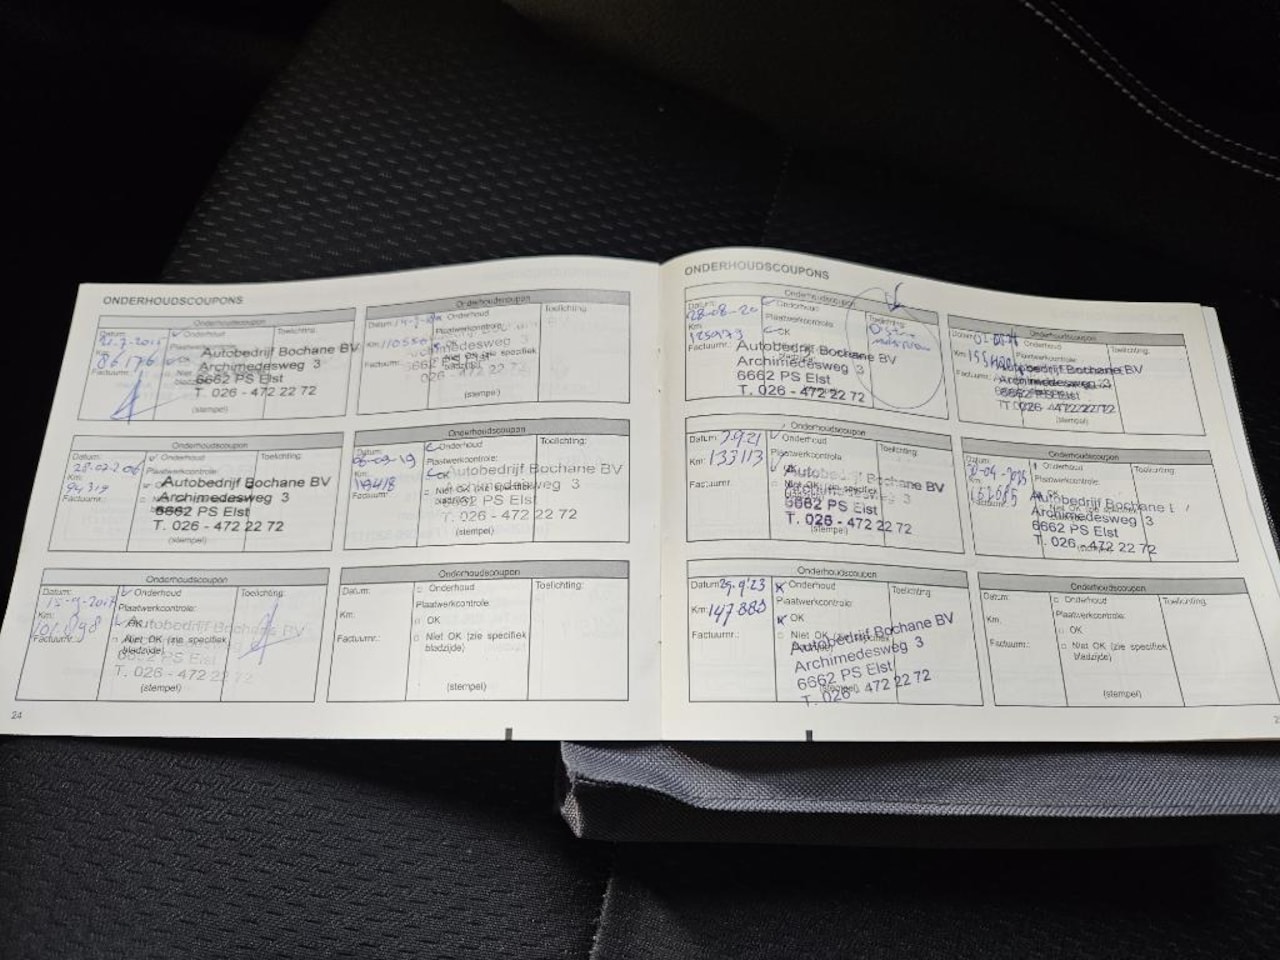 ONDERHOUDSCOUPONS
Onderhoudscoupon
Datum:
Km:
86.176
Factuurnr.:
Onderhoud
Plaatwerkcontrole:
OK
Toelichting:
Autobedrijf Bochane BV
Archimedesweg 3
6662 PS Elst
T. 026 - 472 22 72
(stempel)
Onderhoudscoupon
Datum:
Km: 110550
Factuurnr.:
Onderhoud
Plaatwerkcontrole:
Toelichting:
Archimedesweg 3
6662 PS Elst
026 - 472 22 72
(stempel)
Onderhoudscoupon
Datum:
Km:
94319
Factuurnr.:
Onderhoud
Plaatwerkcontrole:
Toelichting:
Autobedrijf Bochane BV
Archimedesweg 3
6662 PS Elst
T. 026 - 472 22 72
(stempel)
Onderhoudscoupon
Datum:
Km:
Factuurnr.:
Onderhoud
Plaatwerkcontrole:
OK
Niet OK (zie specifiek
bladzijde)
Toelichting:
Autobedrijf Bochane BV
Archimedesweg 3
6662 PS Elst
T. 026 - 472 22 72
(stempel)
Onderhoudscoupon
Datum:
Km:
101.898
Factuurnr.:
Onderhoud
Plaatwerkcontrole:
OK
Niet OK (zie specifiek
bladzijde)
Toelichting:
Autobedrijf Bochane BV
Archimedesweg 3
6662 PS Elst
T. 026 - 472 22 72
(stempel)
Onderhoudscoupon
Datum:
Km:
Factuurnr.:
Onderhoud
Plaatwerkcontrole:
OK
Niet OK (zie specifiek
bladzijde)
Toelichting:
(stempel)
24
ONDERHOUDSCOUPONS
Onderhoudscoupon
Datum:
28-08-20
Km:
125973
Factuurnr.:
Onderhoud
Plaatwerkcontrole:
OK
Toelichting:
Autobedrijf Bochane BV
Archimedesweg 3
6662 PS Elst
T. 026 - 472 22 72
Onderhoudscoupon
Datum:
Km:
Factuurnr.:
Onderhoud
Plaatwerkcontrole:
Toelichting:
Autobedrijf Bochane BV
Archimedesweg 3
6662 PS Elst
T. 026 - 472 22 72
(stempel)
Onderhoudscoupon
Datum: 2.9.21
Km: 133113
Factuurnr.:
Onderhoud
Plaatwerkcontrole:
Toelichting:
Autobedrijf Bochane BV
Archimedesweg 3
6662 PS Elst
T. 026 - 472 22 72
(stempel)
Onderhoudscoupon
Datum:
Km:
Factuurnr.:
Onderhoud
Plaatwerkcontrole:
OK
Toelichting:
Autobedrijf Bochane
Archimedesweg 3
6662 PS Elst
T. 026 - 472 22 72
Onderhoudscoupon
Datum: 25.9.23
Km: 147.883
Factuurnr.:
Onderhoud
Plaatwerkcontrole:
OK
Niet OK
Toelichting:
Autobedrijf Bochane BV
Archimedesweg 3
6662 PS Elst
T. 026 - 472 22 72
(stempel)
Onderhoudscoupon
Datum:
Km:
Factuurnr.:
Onderhoud
Plaatwerkcontrole:
OK
Niet OK (zie specifiek
bladzijde)
Toelichting:
(stempel)